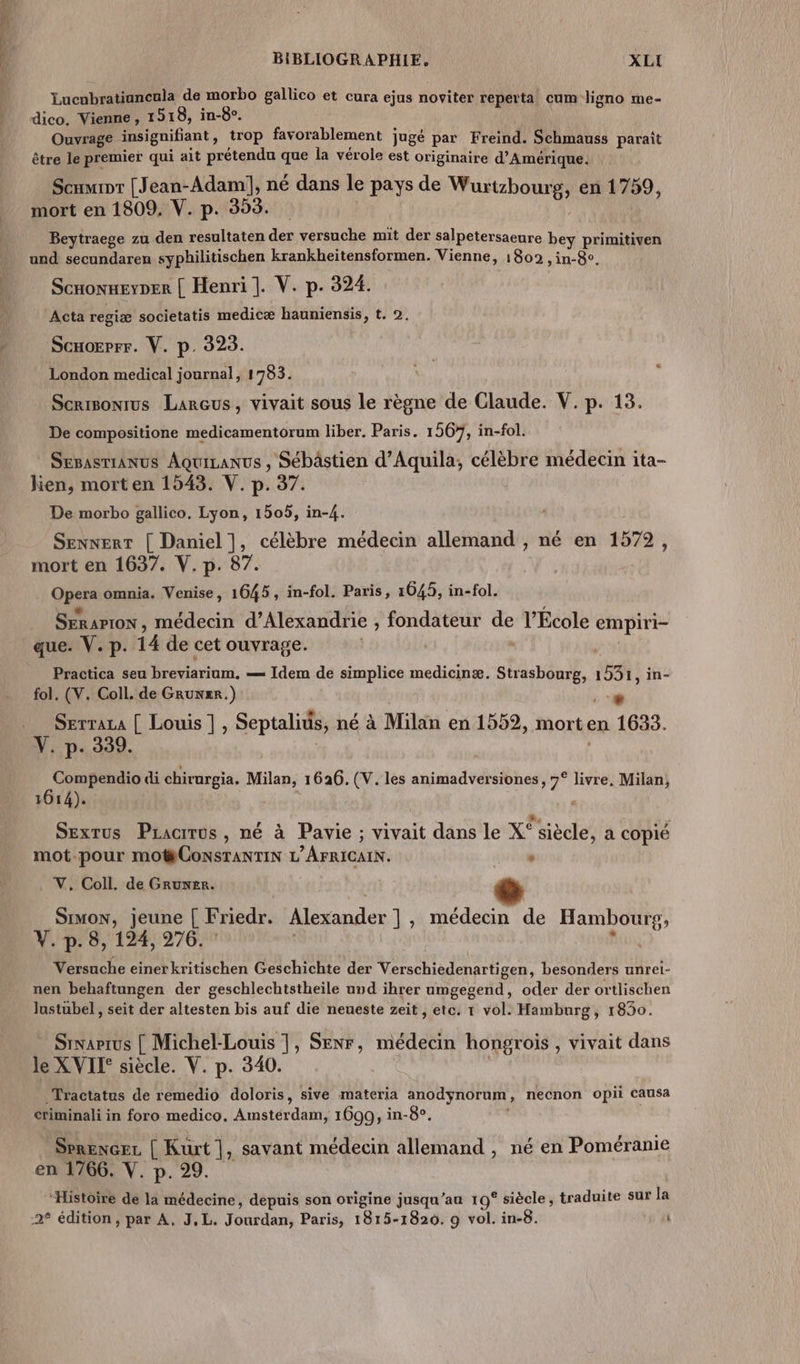 BIBLIOGRAPHIE. XLI
Lucubratiuncula de morbo gallico et cura ejus noviter reperta cum ligno me-
dico. Vienne, 1518, in-8°.
Ouvrage insignifiant, trop favorablement jugé par Freind. Schmauss paraît
être le premier qui ait prétendu que la vérole est originaire d'Amérique.
SCHMIDT [Jean-Adam], né dans le pays de Wurtzbourg, en 1759,
mort en 1809. V. p. 353.
Beytraege zu den resultaten der versuche mit der salpetersaeure bey primitiven
und secundaren syphilitischen krankheitensformen. Vienne, 1802, in-8°.
SCHONHEYDER [ Henri ]. V. p. 324.
Acta regiæ societatis medicæ hauniensis, t. 2.
SCHOEPFF. V. p. 323.
London medical journal, 1783.
SCRIBONIUS LARGUS, vivait sous le règne de Claude. V. p. 13.
De compositione medicamentorum liber. Paris. 1567, in-fol.
SEBASTIANUS AQUILANUS, Sébastien d'Aquila, célèbre médecin ita-
lien, mort en 1543. V. p. 37.
De morbo gallico. Lyon, 1505, in-4.
SENNERT [ Daniel ], célèbre médecin allemand , né en 1572,
mort en 1637. V. p. 87.
Opera omnia. Venise, 1645, in-fol. Paris, 1645, in-fol.
SERAPION, médecin d'Alexandrie , fondateur de l'École empiri-
que. V. p. 14 de cet ouvrage.
Practica seu breviarium. — Idem de simplice medicinæ. Strasbourg, 1531, in-
fol. (V. Coll. de GRUNER.)
SETTALA [ Louis ] , Septalius, né à Milan en 1552, mort en 1633.
V. p. 339.
Compendio di chirurgia. Milan, 1626. (V. les animadversiones, 7e livre. Milan,
1614).
SEXTUS PLACITUS, né à Pavie ; vivait dans le Xe siècle, a copié
mot pour mot CONSTANTIN L'AFRICAIN.
V. Coll. de GRUNER.
SIMON, jeune [ Friedr. Alexander ] , médecin de Hambourg,
V. p. 8, 124, 276.
Versuche einer kritischen Geschichte der Verschiedenartigen, besonders unrei-
nen behaftungen der geschlechtstheile und ihrer umgegend, oder der ortlischen
lustubel, seit der altesten bis auf die neueste zeit, etc. 1 vol. Hamburg, 1830.
SINAPIUS [ Michel-Louis ], SENF, médecin hongrois , vivait dans
le XVIIe siècle. V. p. 340.
Tractatus de remedio doloris, sive materia anodynorum, necnon opii causa
criminali in foro medico. Amsterdam, 1699, in-8°.
SPRENGEL [ Kurt ], savant médecin allemand , né en Poméranie
en 1766. V. p. 29.
Histoire de la médecine, depuis son origine jusqu'au 19e siècle, traduite sur la
2e édition, par A. J. L. Jourdan, Paris, 1815-1820. 9 vol. in-8.